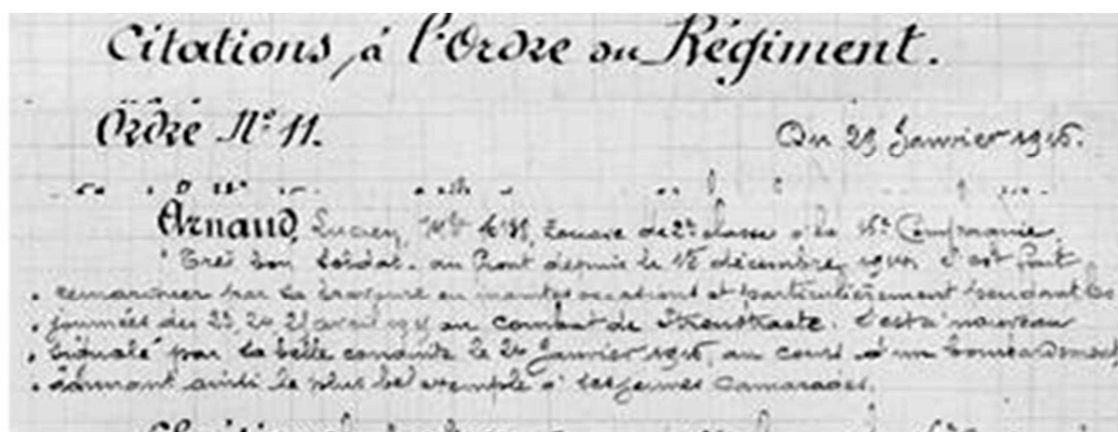 Citations, à l'Ordre du Régiment.
Ordre N° 11.
Du 29 Janvier 1916.
Arnaud, Lucien, Mle, Zouave de 2e classe à la 15e Compagnie
Très bon Soldat. au front depuis le décembre s'est fait
remarquer par sa bravoure en maintes occasions et particulièrement pendant les
journées des 23, 24, 25 avril 1915 au combat de Steenstraate. S'est à nouveau
signalé par sa belle conduite le 24 Janvier 1916, au cours d'un bombardement,
donnant ainsi le plus bel exemple à ses jeunes camarades.